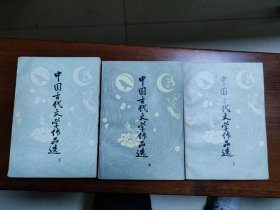 中国古代文学作品选
下
中国古代文学作品选
中
中国古代文学作品选
上